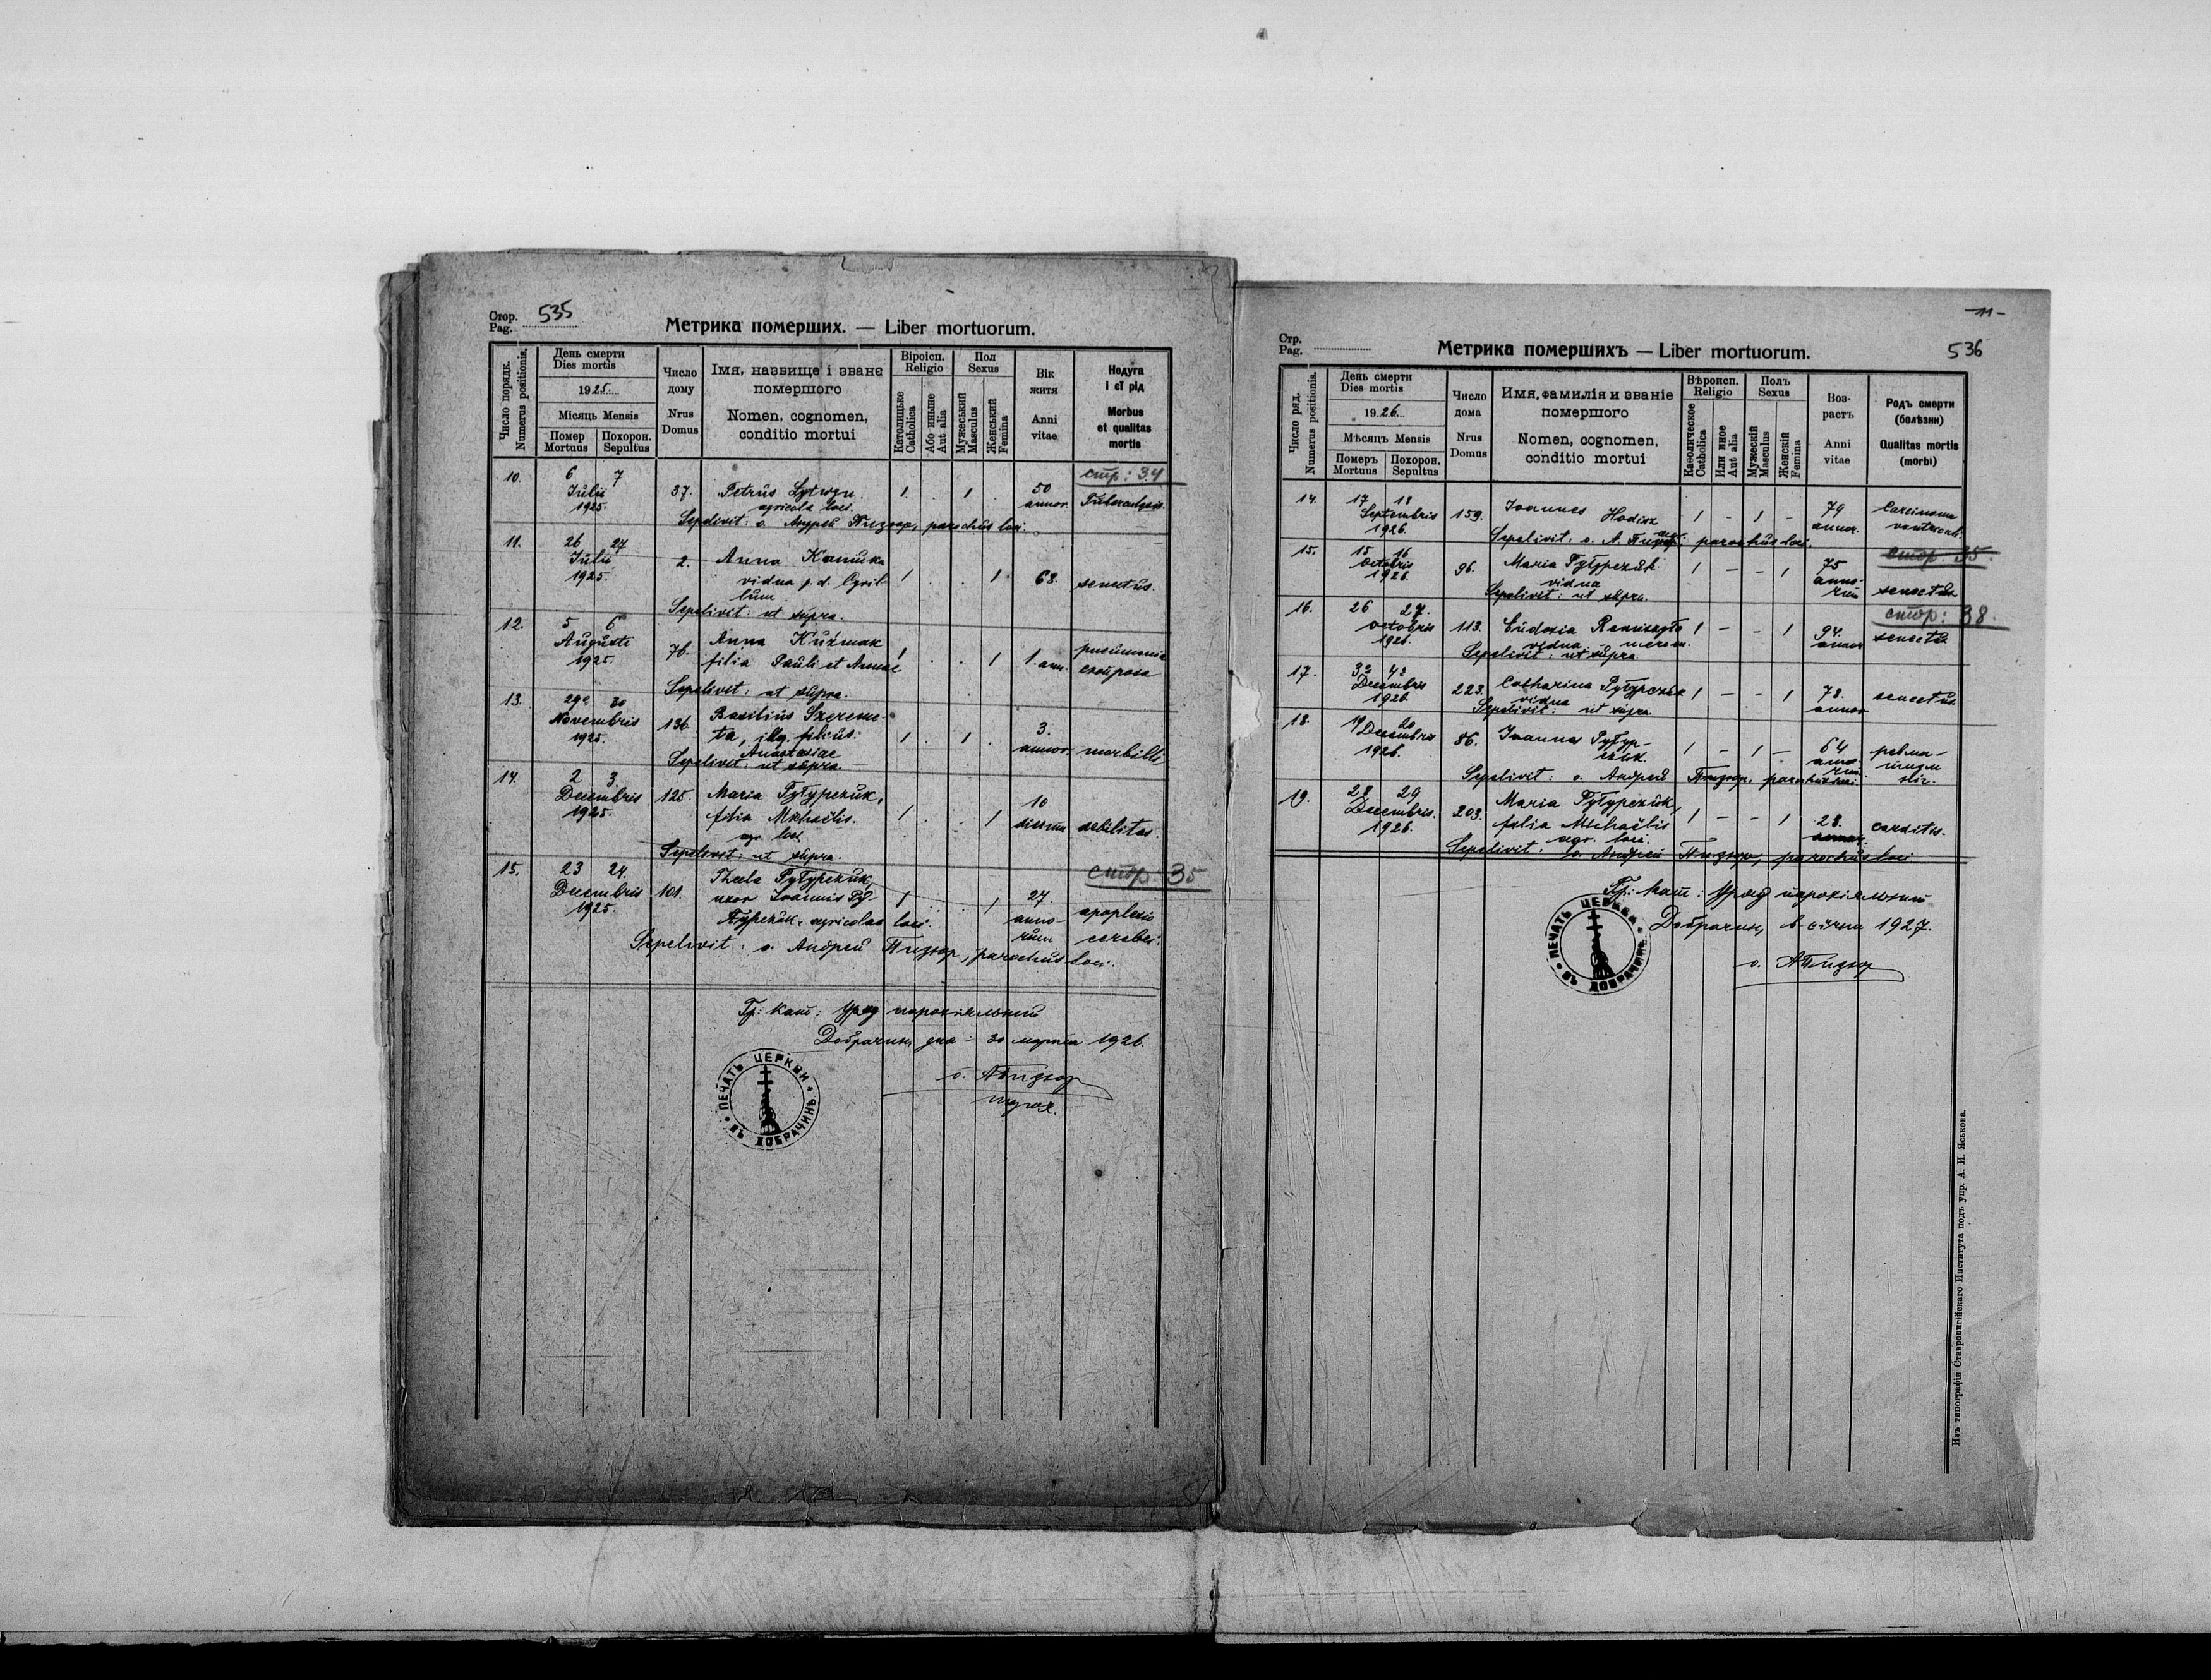 Стор.
Pag. 535
Метрика померших. — Liber mortuorum.
Число порядк.
Numerus positionis.
День смерти
Dies mortis
1925.
Місяць Mensis
Помер
Mortuus
Похорон.
Sepultus
Число
дому
Nrus
Domus
Імя, назвище і зване
помершого
Nomen, cognomen,
conditio mortui
Віроісп.
Religio
Католицьке
Catholica
Або иньше
Aut alia
Пол
Sexus
Мужеський
Masculus
Женський
Femina
Вік
житя
Anni
vitae
Недуга
і єї рід
Morbus
et qualitas
mortis
стр: 34
10. 6 7
Iulii
1925.
37. Petrus Lytwyn.
agricola loci.
1 . 1 .
50
annor.
Tuberculosis.
Sepelivit: о. Андрей Пизюр, parochus loci.
11. 26 27
Iulii
1925.
2. Anna
vidua p. d. Cyril-
lum
1 . . 1
68. senectus.
Sepelivit: ut supra.
12. 5 6
Augusti
1925.
76. Anna Kuźmak
filia Pauli et Annae
1 . . 1
1. ann.
Sepelivit: ut supra.
13. 29 30
Novembris
1925.
136. Basilius Szereme-
ta, illeg. filius:
Anastasiae
1 . 1 .
3.
annor. morbilli
Sepelivit: ut supra.
14. 2 3
Decembris
1925.
125. Maria Pyłypczuk,
filia Michaëlis.
agr. loci
1 . . 1
10
dierum debilitas.
Sepelivit: ut supra.
стор: 35
15. 23 24.
Decembris
1925.
101. Thecla Pyłypczuk,
uxor Ioannis
agricolae loci.
1 . . 1
27.
anno-
rum
apoplexio
cerebri.
Sepelivit: о. Андрей Пизюр, parochus loci.
Гр: кат: Уряд парохіяльний
Добрачин, дна 30 марта 1926.
о. АПизюр
парох.
ПЕЧАТЬ ЦЕРКВИ
ВЪ ДОБРАЧИНЪ
-11-
Стр.
Pag.
536
Метрика помершихъ — Liber mortuorum.
Число ряд.
Numerus positionis.
День смерти
Dies mortis
1926.
Мѣсяцъ Mensis
Померъ
Mortuus
Похорон.
Sepultus
Число
дома
Nrus
Domus
Имя, фамилія и званіе
помершого
Nomen, cognomen,
conditio mortui
Вѣроисп.
Religio
Каѳолическое
Catholica
Или иное
Aut alia
Полъ
Sexus
Мужескій
Masculus
Женскій
Femina
Воз-
растъ
Anni
vitae
Родъ смерти
(болѣзни)
Qualitas mortis
(morbi)
14. 17 18
Septembris
1926.
159. Ioannes
1 - 1 -
79
annor.
Carcinoma
ventriculi.
Sepelivit: о. А. Пизюр, parochus loci.
стор. 35.
15. 15 16
Octobris
1926.
96. Maria Pyłypczuk
vidua
1 - - 1
75
anno-
rum senectus.
Sepelivit: ut supra.
стор: 38.
16. 26 27.
Octobris
1926.
113. Eudoxia
vidua
1 - - 1
94.
annor senectus
Sepelivit: ut supra.
17. 3 4
Decembris
1926.
223. Catharina Pyłypczuk
vidua
1 - - 1
78.
annor senectus.
Sepelivit: ut supra
18. 19 20
Decembris
1926.
86. Ioannes Pyłyp-
czuk.
1 - 1 -
64
anno-
rum.
Sepelivit: о. Андрей Пизюр, parochus loci.
19. 28 29
Decembris.
1926.
203. Maria Pyłypczuk,
filia Michaëlis
agr. loci.
1 - - 1
28.
annor. carditis.
Sepelivit: о. Андрей Пизюр, parochus loci
Гр: кат: Уряд парохіяльний
Добрачин, в січни 1927.
о. АПизюр
ПЕЧАТЬ ЦЕРКВИ
ВЪ ДОБРАЧИНЪ
Изъ типографіи Ставропигійскаго Института подъ упр. А. И. Яськова.